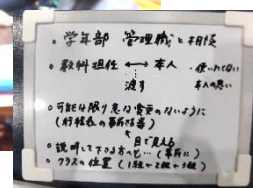 ・学年部 管理職と相談
・教科担任 ←→ 本人 ・使いたくない
渡す 本人の思い
・可能な限り急な変更のないように
(行程表の事前
目で見える
・説明して下さる方へも… (事前に)
・クラスの位置 (1組←2組→3組)